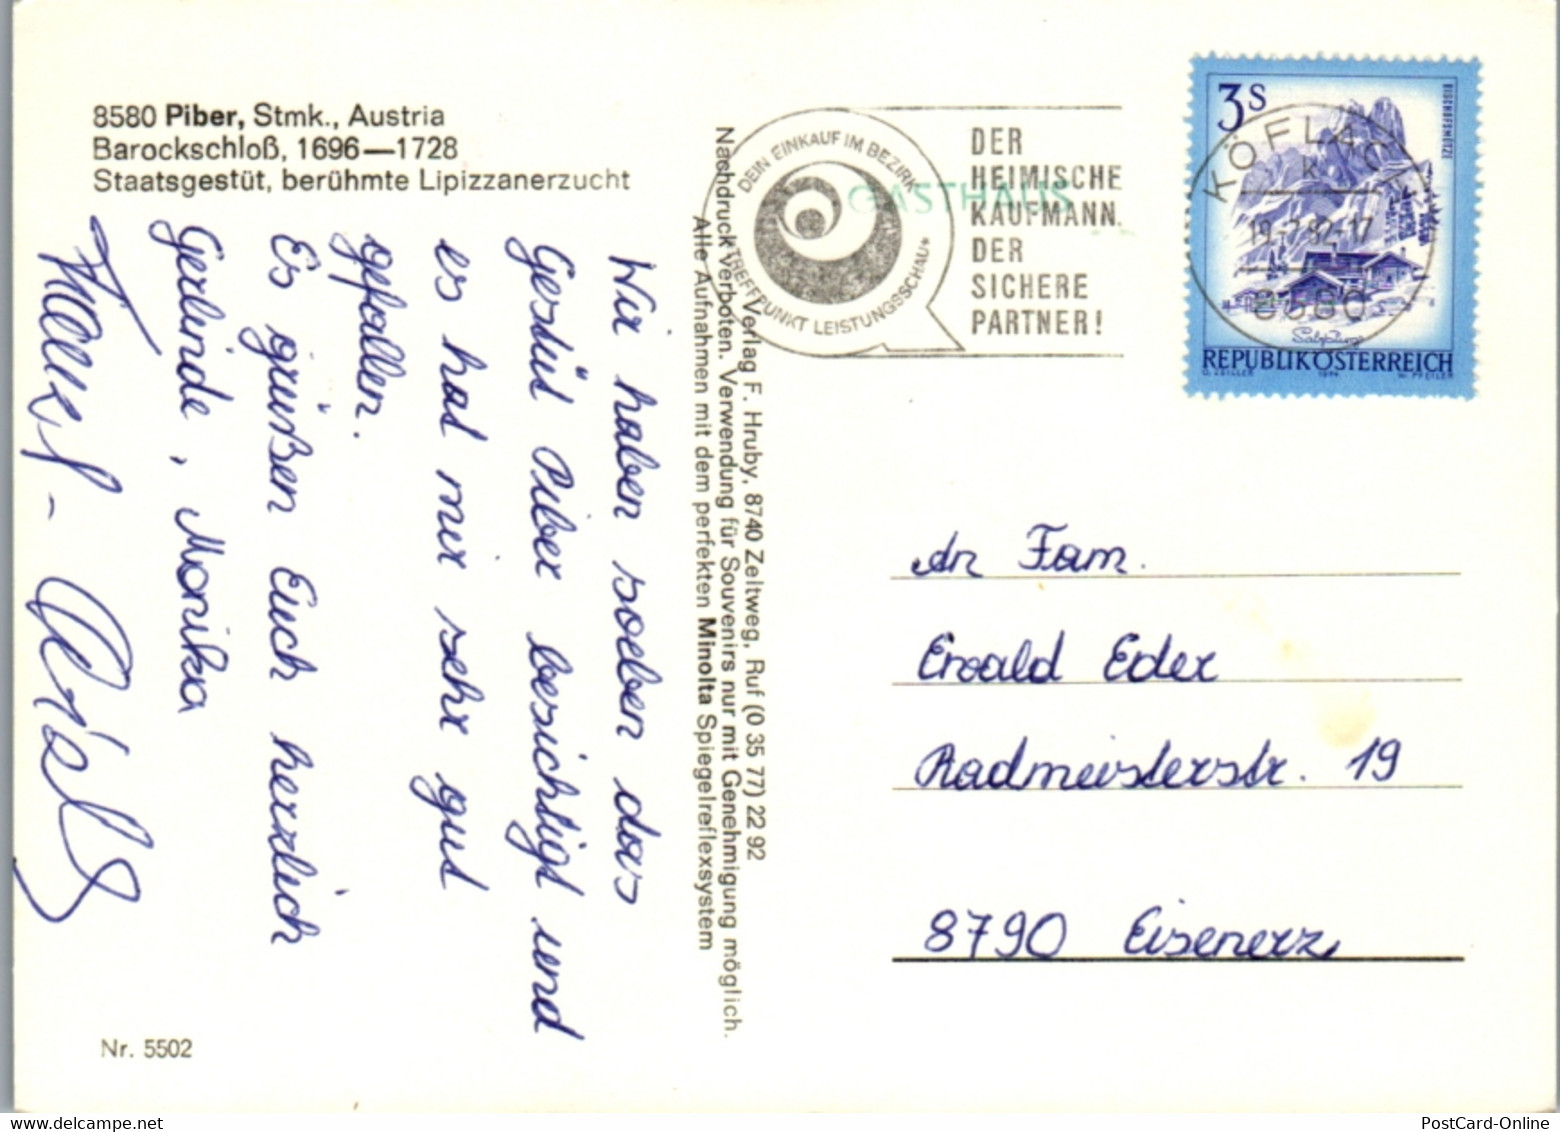 8580 Piber, Stmk., Austria
Barockschloß, 1696—1728
Staatsgestüt, berühmte Lipizzanerzucht
Wir haben soeben das
Gestüt Piber besichtigt und
es hat mir sehr gut
gefallen.
Es grüßen Euch herzlich
Gerlinde, Monika
Nr. 5502
Verlag F. Hruby, 8740 Zeltweg, Ruf (0 35 77) 22 92
Nachdruck verboten. Verwendung für Souvenirs nur mit Genehmigung möglich.
Alle Aufnahmen mit dem perfekten Minolta Spiegelreflexsystem
DEIN EINKAUF IM BEZIRK
TREFFPUNKT LEISTUNGSSCHAU
GASTHAUS
DER
HEIMISCHE
KAUFMANN.
DER
SICHERE
PARTNER!
3 S
BISCHOFSMÜTZE
KÖFLACH
k
19.-7.82-17
8580
Salzburg
REPUBLIK ÖSTERREICH
O. ZEILLER 1974 W. PFEILER
An Fam.
Ewald Eder
Radmeisterstr. 19
8790 Eisenerz
PostCard-Online